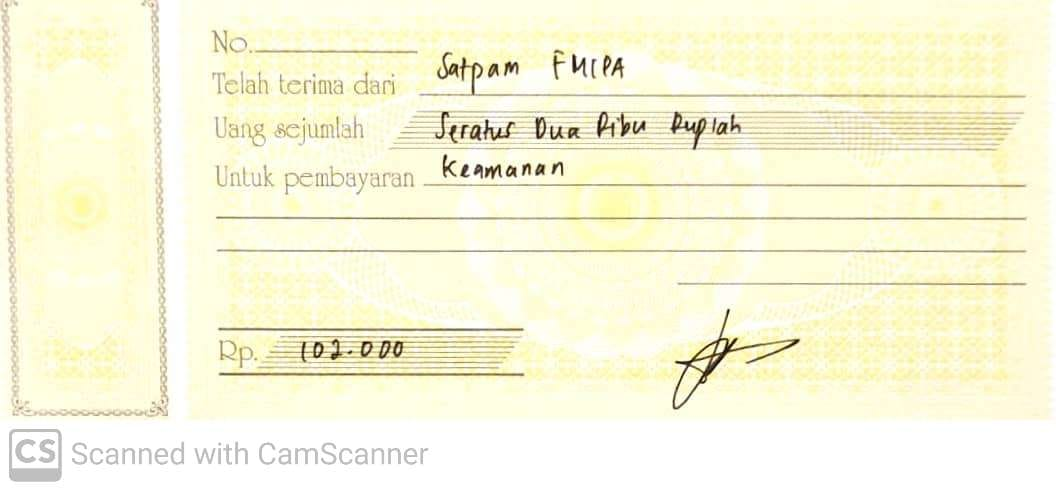 No.
Telah terima dari Satpam FMIPA
Uang sejumlah Seratus Dua Ribu Rupiah
Untuk pembayaran Keamanan
Rp. 102.000
CS Scanned with CamScanner